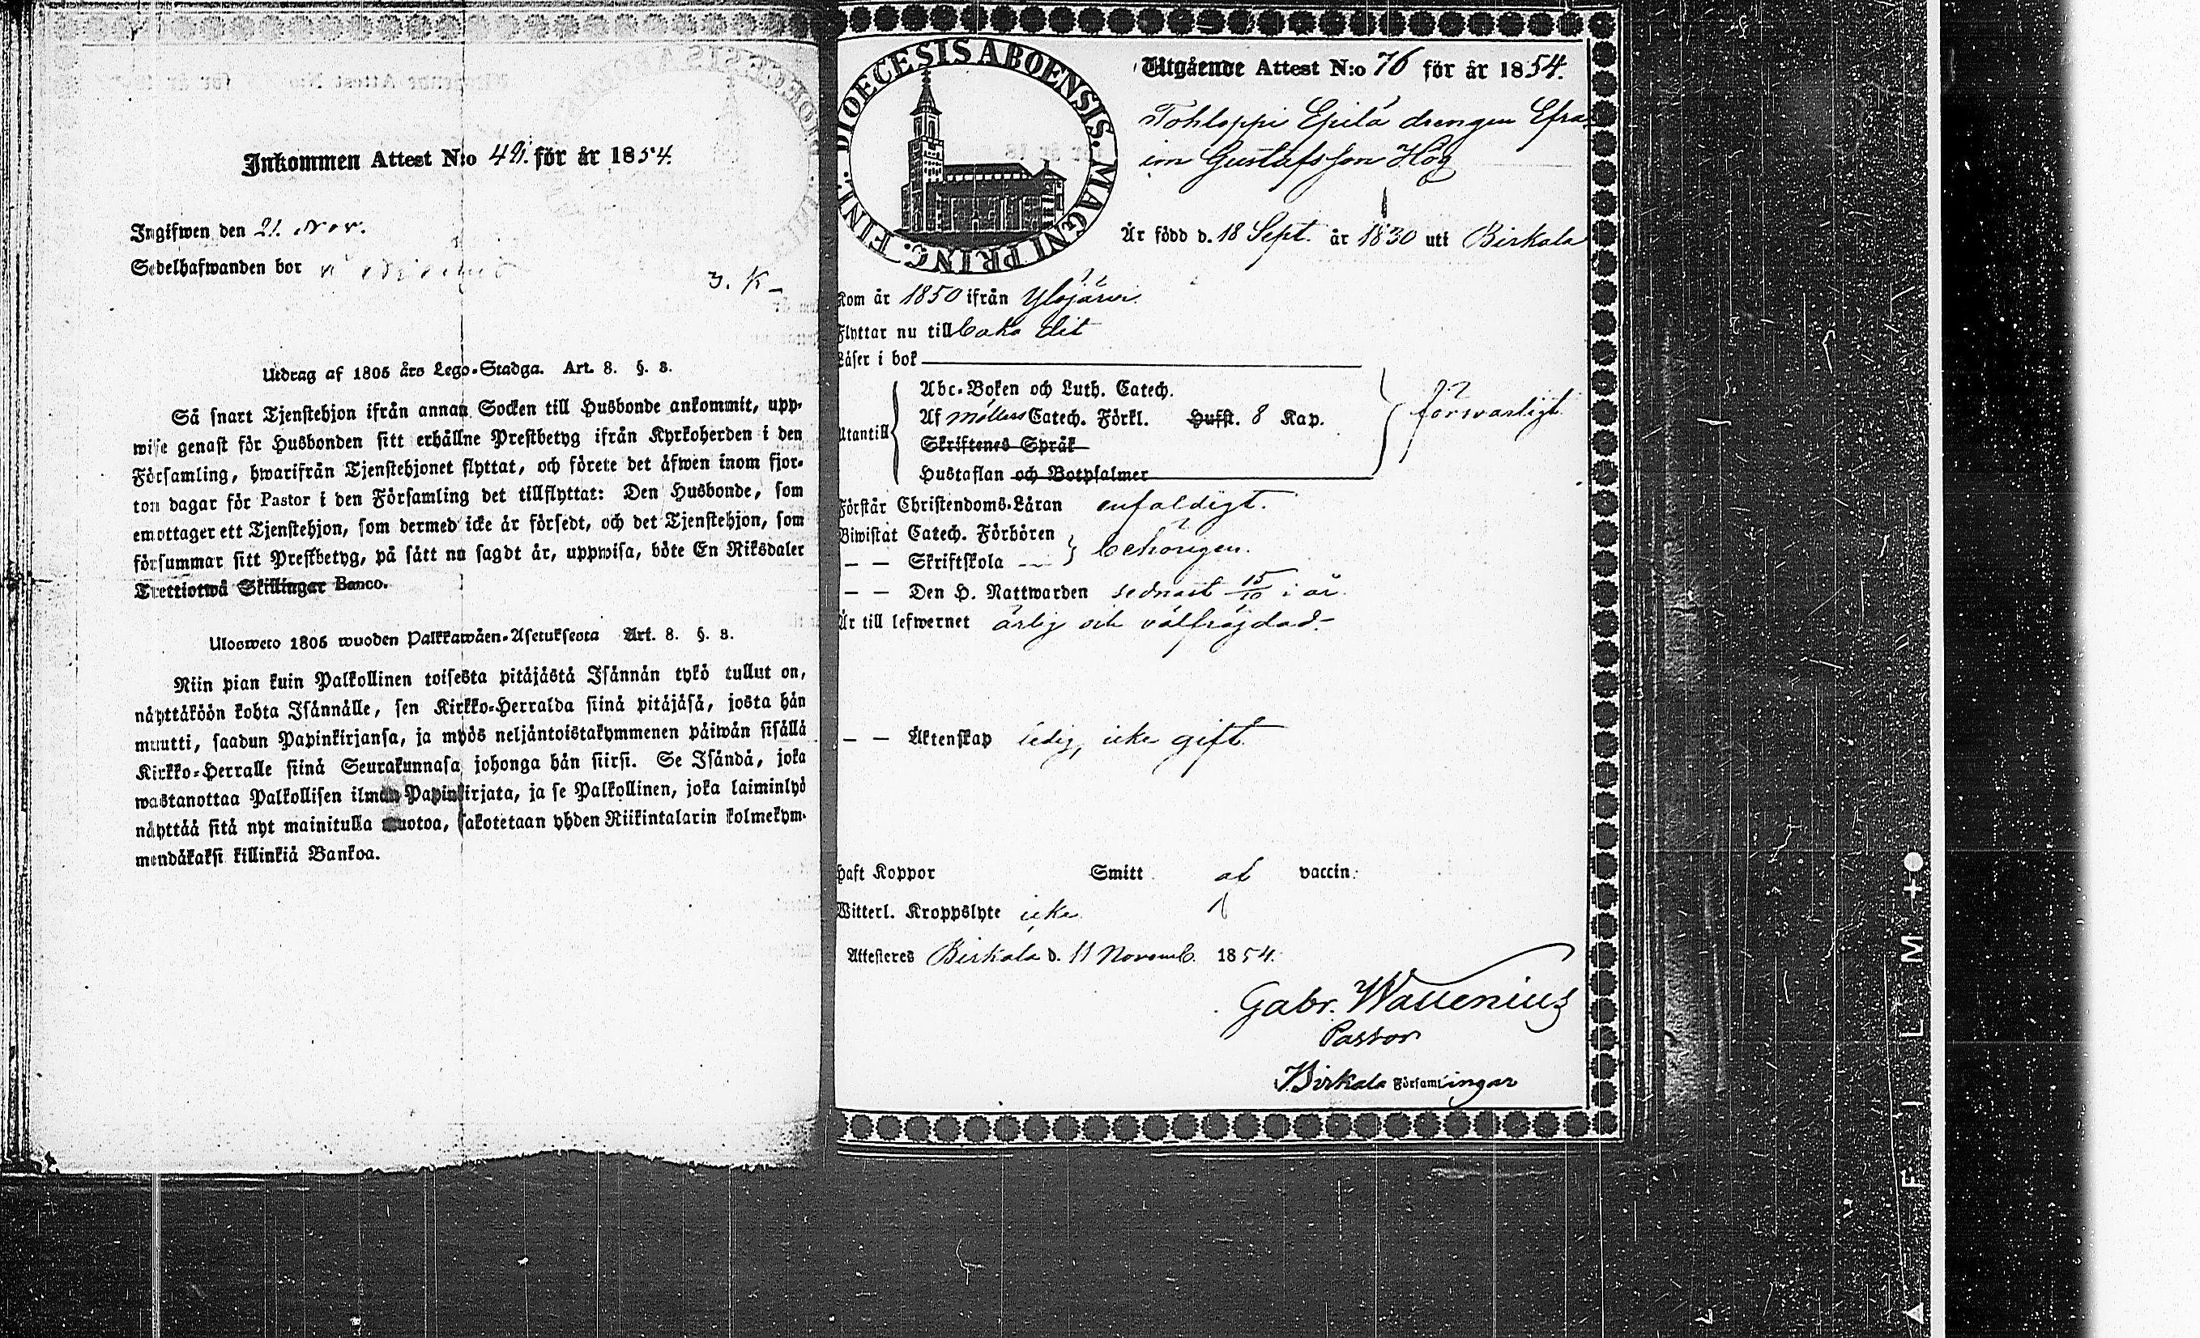 Inkommen Attest N:o 42. för år 1854.
Ingifwen den 21. Nov.
Sedelhafwanden bor
Utdrag af 1805 års Lego-Stadga. Art. 8. §. 8.
Så snart Tjenstehjon ifrån annan Socken till Husbonde ankommit, upp-
wise genast för Husbonden sitt erhållne Prestbetyg ifrån Kyrkoherden i den
Församling, hwarifrån Tjenstehjonet flyttat, och förete det äfwen inom fjor-
ton dagar för Pastor i den Församling det tillflyttat: Den Husbonde, som
emottager ett Tjenstehjon, som dermed icke är försedt, och det Tjenstehjon, som
försummar sitt Prestbetyg, på sätt nu sagdt är, uppwisa, böte En Riksdaler
Trettiotwå Skillingar Banco.
Ulosweto 1805 wuoden Palkkawäen-Asetuksesta Art. 8. §. 8.
Niin pian kuin Palkollinen toisesta pitäjästä Isännän tykö tullut on,
näyttäköön kohta Isännälle, sen Kirkko-Herralda siinä pitäjäsä, josta hän
muutti, saadun Papinkirjansa, ja myös neljäntoistakymmenen päiwän sisällä
Kirkko-Herralle siinä Seurakunnasa johonga hän siirsi. Se Isändä, joka
wastanottaa Palkollisen ilman Papinkirjata, ja se Palkollinen, joka laiminlyö
näyttää sitä nyt mainitulla muotoa, sakotetaan yhden Riikintalarin kolmekym-
mendäkaksi killinkiä Bankoa.
DIOECESIS ABOENSIS. MAGNI PRINC. FINL.
Utgående Attest N:o 76 för år 1854.
Tohloppi Epilä drengen Efra-
im Gustafsson Hög
Är född d. 18 Sept. år 1830 uti Birkala
Kom år 1850 ifrån Ylöjärvi
Flyttar nu tillbaka dit
Läser i bok
Utantill
Abc-Boken och Luth. Catech.
Af Möllers Catech. Förkl. Husst. 8 Kap.
Skriftenes Språk
Hustaflan och Botpsalmer
försvarligt
Förstår Christendoms-Läran enfaldigt.
Biwistat Catech. Förhören
— — Skriftskola
behörigen.
— — Den H. Nattwarden sednast 15/10 i år.
Är till lefwernet ärlig och välfrägdad
— — Äktenskap ledig, icke gift.
Haft Koppor Smitt af vaccin:
Witterl. Kroppslyte icke
Attesteres Birkala d. 11 Novemb. 1854.
Gabr. Wallenius
Pastor
Birkala Församlingar
FILM